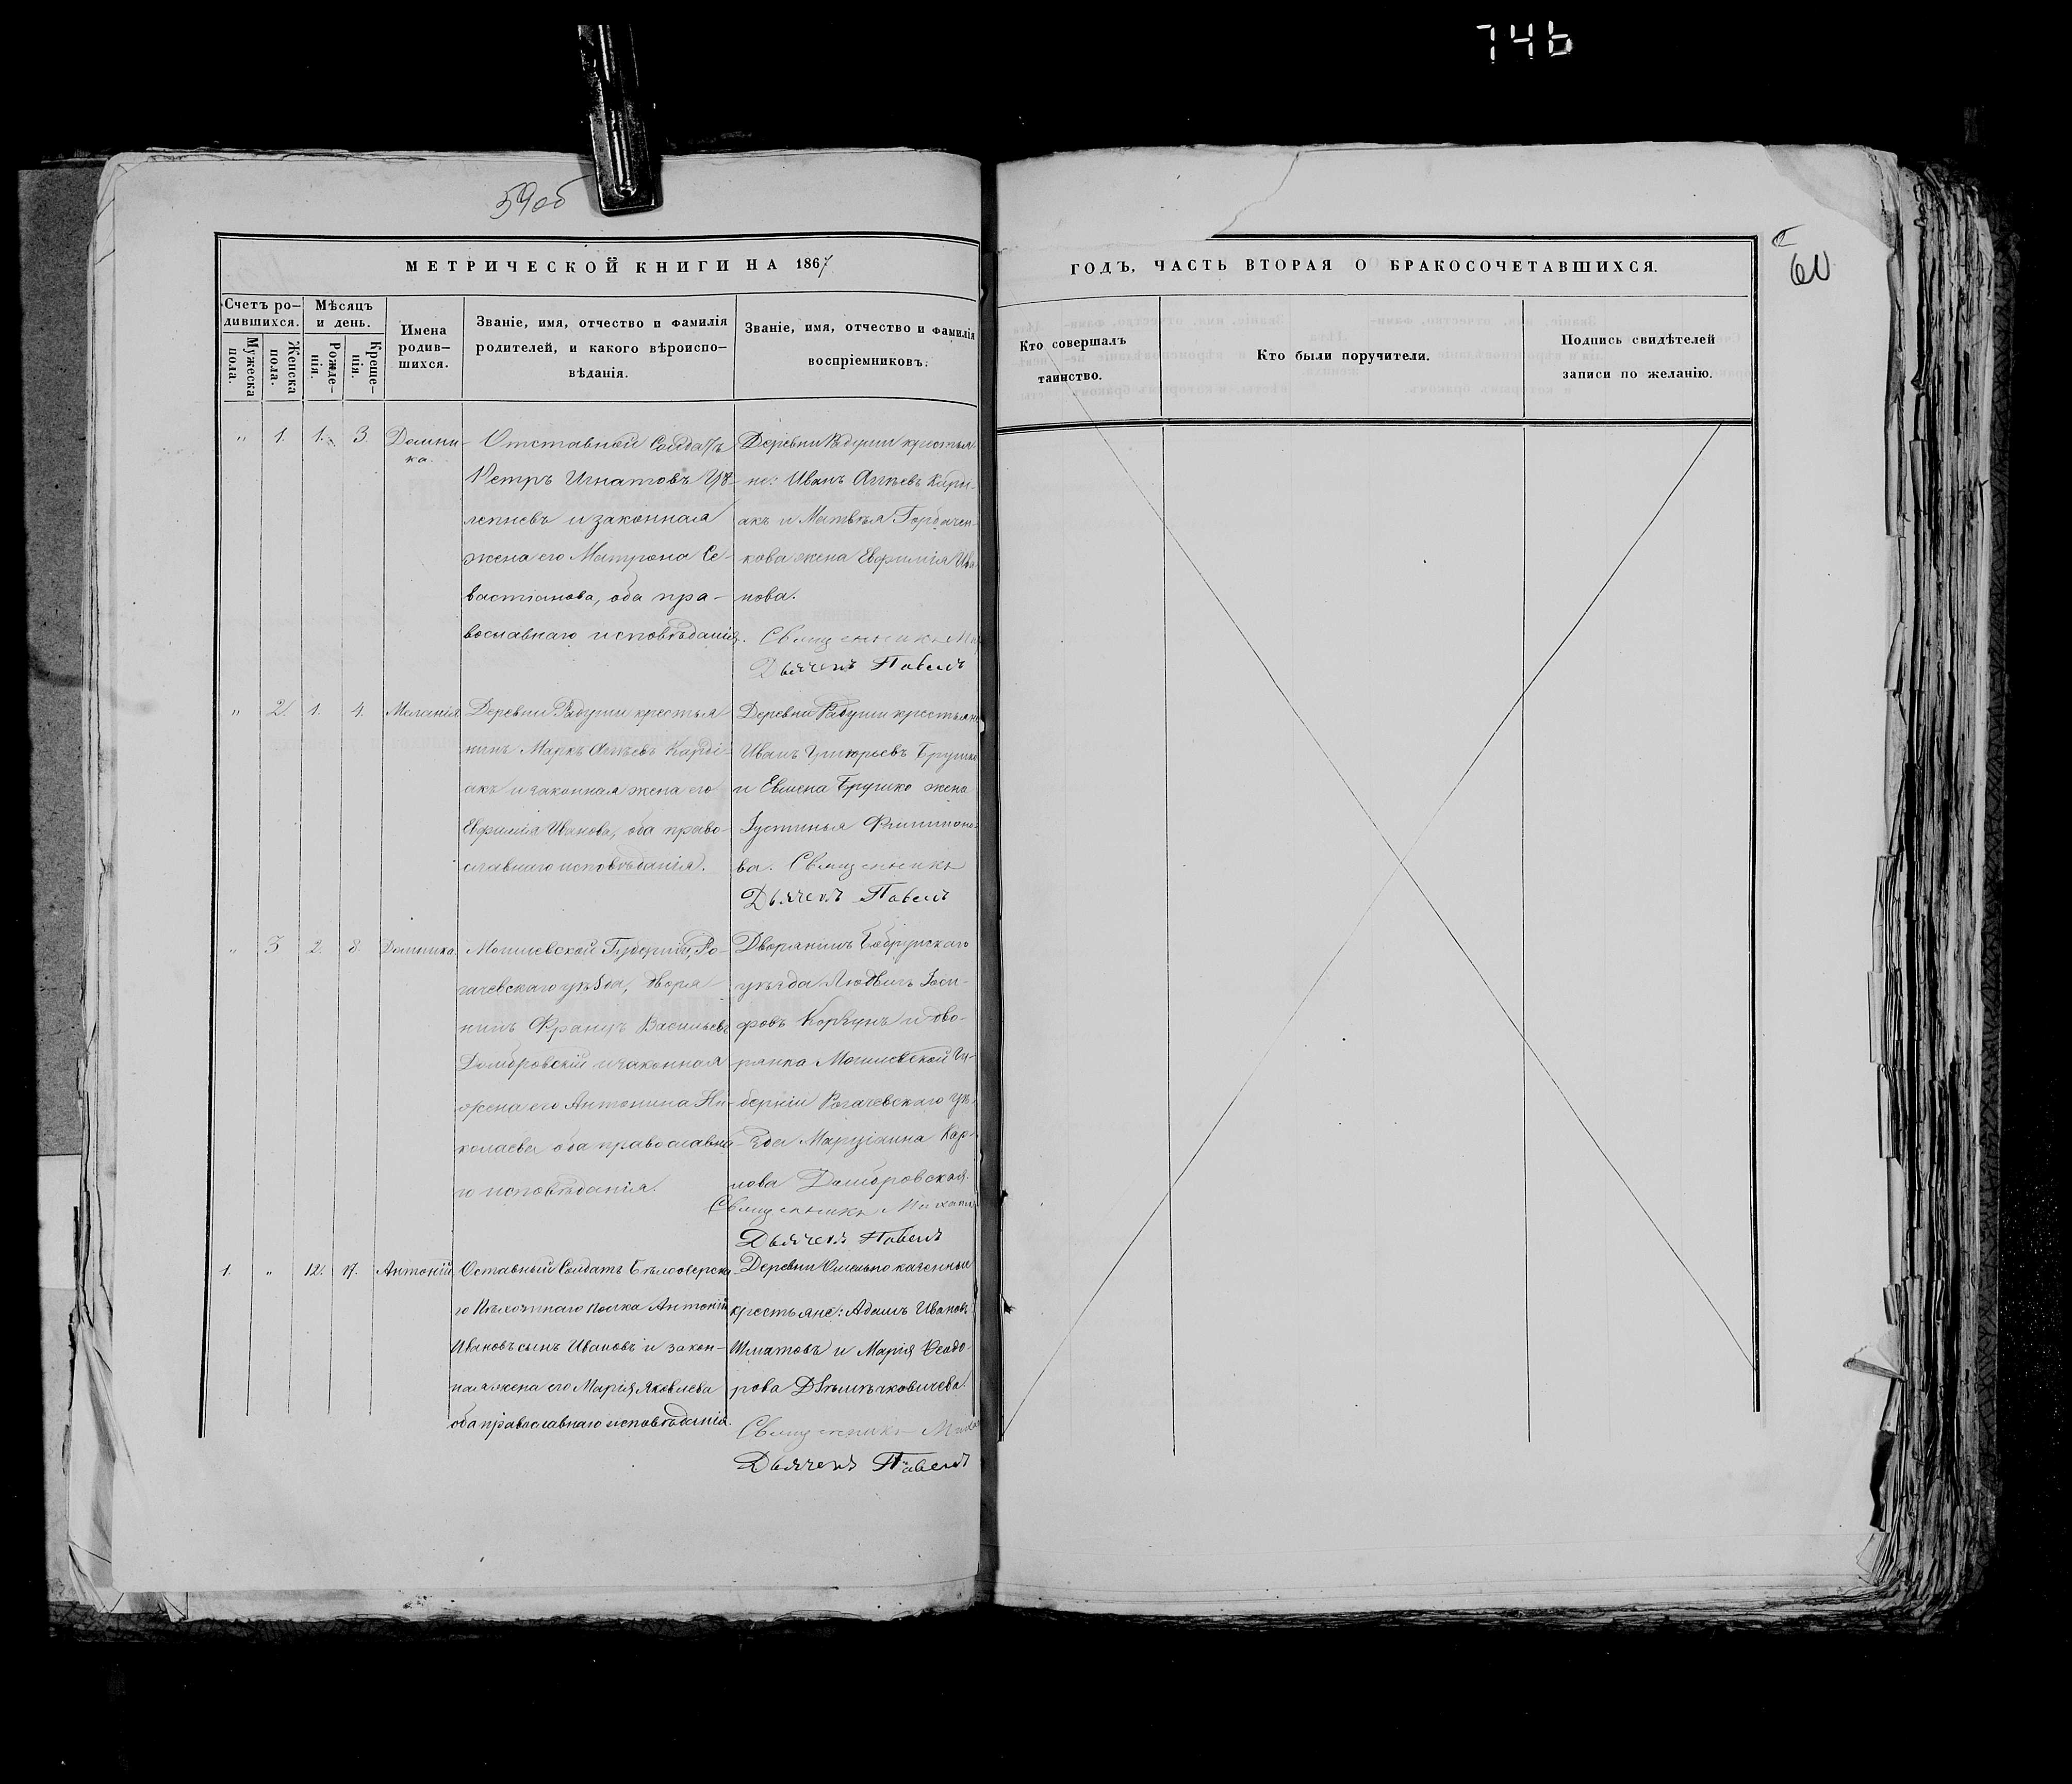 746
59об
60
МЕТРИЧЕСКОЙ КНИГИ НА 1867
Счетъ ро-
дившихся.
Мужеска
пола.
Женска
пола.
Мѣсяцъ
и день.
Рожде-
нія.
Креще-
нія.
Имена
родив-
шихся.
Званіе, имя, отчество и фамилія
родителей, и какого вѣроиспо-
вѣданія.
Званіе, имя, отчество и фамилія
воспріемниковъ.
" 1. 1. 3. Домни-
ка
Отставной Солдатъ
Петръ Игнатовъ
и законная
жена его Матрона Се-
вастіанова, оба пра-
вославнаго исповѣданія.
Деревни крестья-
не: Иванъ
и Матвѣя Горбачен-
кова жена Евфимія Ива
нова.
Священникъ
Дьячекъ Павелъ
" 2. 1. 4. Меланія
Деревни крестья
нинъ Маркъ
акъ и законная жена его
Евфимія Иванова, оба право-
славнаго исповѣданія.
Деревни крестьяне
Иванъ Григорьевъ
и жена
Іустинья Филимоно-
ва. Священникъ
Дьячекъ Павелъ
" 3 2. 8. Домника.
Могилевской Губерніи, Ро-
гачевскаго уѣзда, дворя
нинъ Францъ Васильевъ
Домбровскій и законная
жена его Антонина Ни-
колаева оба православна-
го исповѣданія.
Дворянинъ Бобруйскаго
уѣзда Людвигъ Іоси-
фовъ и дво-
рянка Могилевской Гу-
берніи Рогачевскаго уѣ-
зда Марціанна Кар-
лова Домбровская.
Священникъ Михаилъ
Дьячекъ Павелъ
1. " 12. 17. Антоній
Оставный Солдатъ Бѣлозерска
го Пѣхотнаго полка Антоній
Ивановъ сынъ Ивановъ и закон-
ная жена его Марія Яковлева
оба православнаго исповѣданія.
Деревни казенные
крестьяне: Адамъ Ивановъ
и Марія Ѳеодо-
рова
Священникъ
Дьячекъ Павелъ
ГОДЪ, ЧАСТЬ ВТОРАЯ О БРАКОСОЧЕТАВШИХСЯ.
Кто совершалъ
таинство.
Кто были поручители.
Подпись свидѣтелей
записи по желанію.